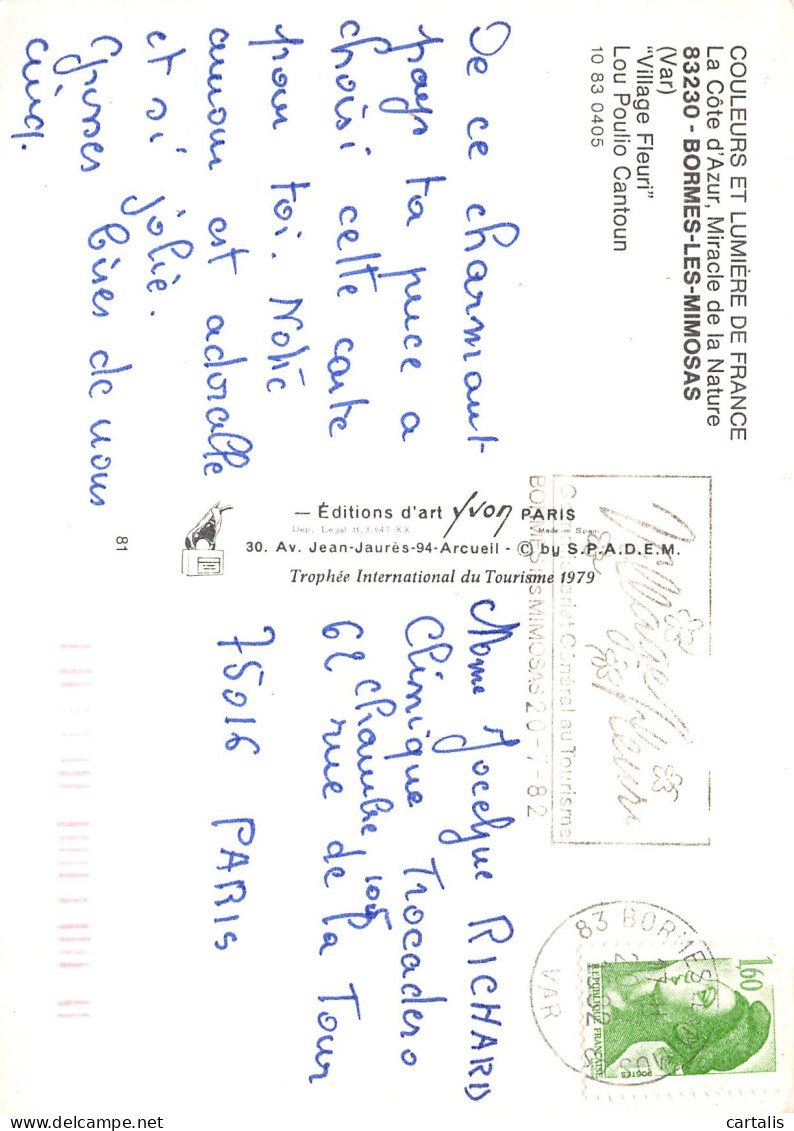 COULEURS ET LUMIÈRE DE FRANCE
La Côte d'Azur, Miracle de la Nature
83230 - BORMES-LES-MIMOSAS
(Var)
"Village Fleuri"
Lou Poulio Cantoun
10 83 0405
De ce charmant
pays ta puce a
choisi cette carte
pour toi. Notre
amour est adorable
et si jolie.
Grosses bises de nous
cinq.
— Éditions d'art Yvon PARIS
Dep. Legal B.3.647-XX Made in Spain
30. Av. Jean-Jaurès-94-Arcueil - © by S.P.A.D.E.M.
Trophée International du Tourisme 1979
81
Village fleuri
Commissariat Général au Tourisme
BORMES LES MIMOSAS 20-7-82
83 BORMES LES
VAR
1,60
REPUBLIQUE FRANÇAISE
POSTES
Mme Jocelyne RICHARD
Clinique Trocadero
Chambre 105
62 rue de la Tour
75016 PARIS
cartalis